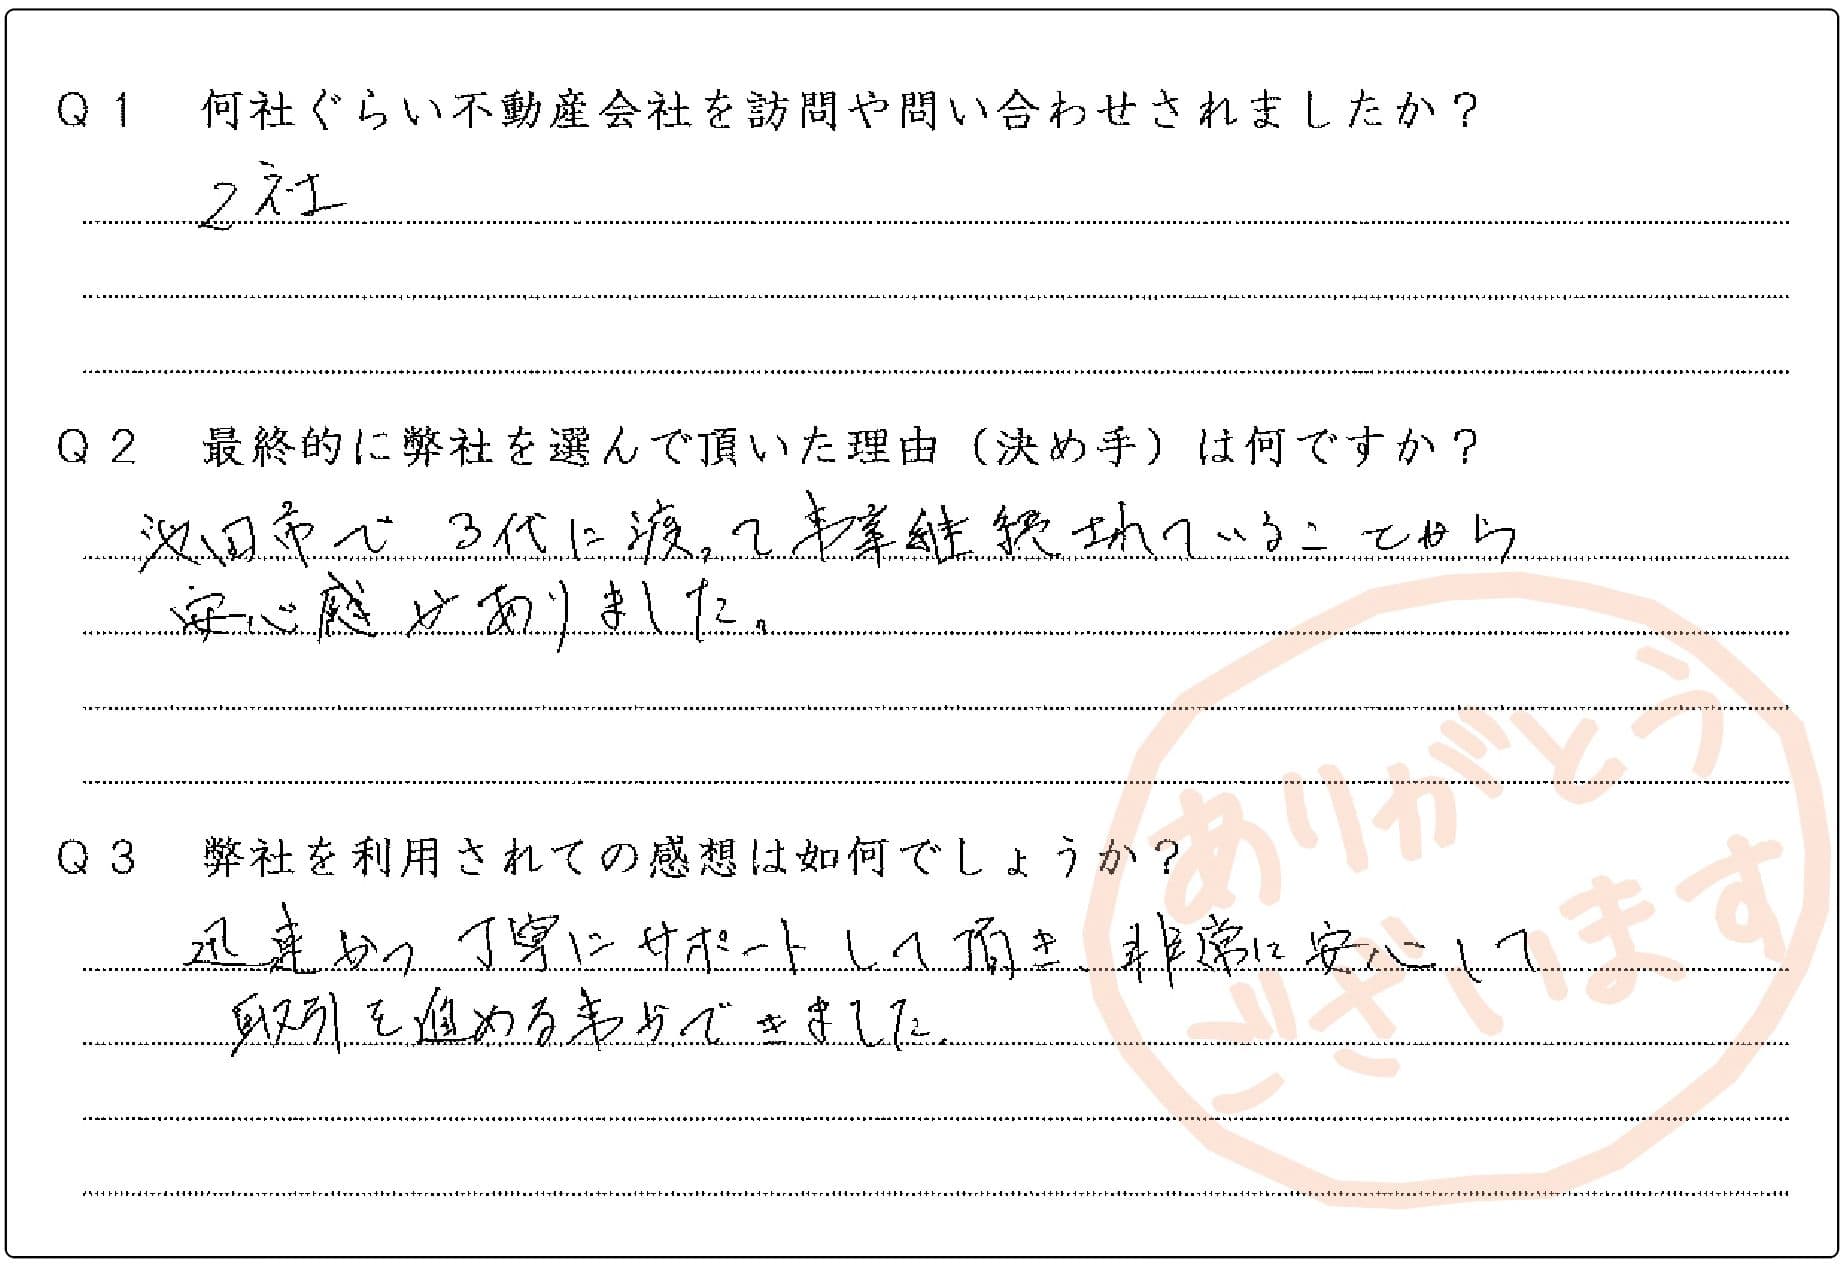 Q1 何社ぐらい不動産会社を訪問や問い合わせされましたか？
2社
Q2 最終的に弊社を選んで頂いた理由（決め手）は何ですか？
池田市で3代に渡って事業継続されていることから
安心感がありました。
Q3 弊社を利用されての感想は如何でしょうか？
迅速かつ丁寧にサポートして頂き、非常に安心して
取引を進める事ができました。
ありがとう
ございます